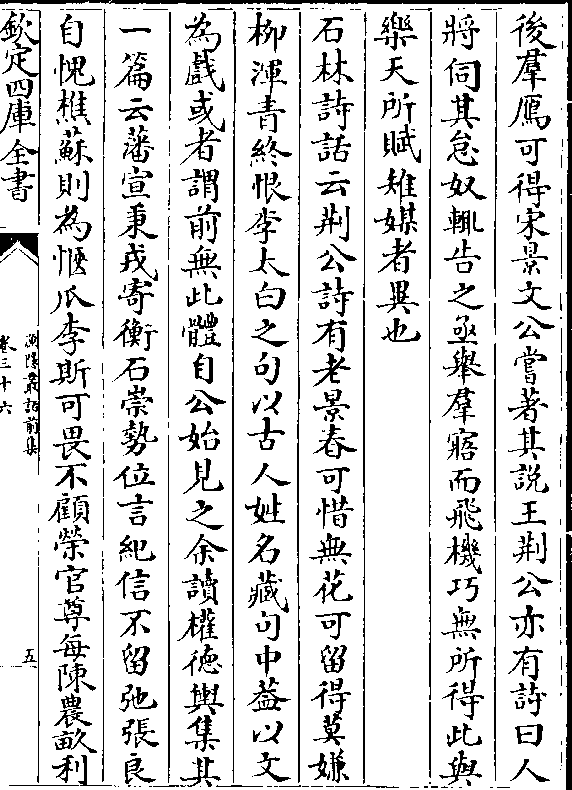 後羣鴈可得宋景文公嘗著其説王荆公亦有詩曰人
將伺其怠奴輒告之亟舉羣寤而飛機巧無所得此與
樂天所賦雉媒者異也
石林詩話云荆公詩有老景春可惜無花可留得莫嫌
柳渾青終恨李太白之句以古人姓名藏句中葢以文
為戲或者謂前無此體自公始見之余讀權徳輿集其
一篇云藩宣秉戎寄衡石崇勢位言紀信不留弛張良
自愧樵蘇則為愜爪李斯可畏不顧榮官尊每陳農畝利
欽定四庫全書
漁隱叢話前集
卷三十六
五